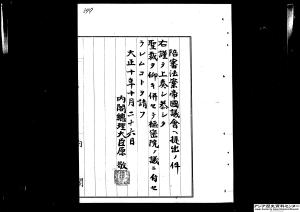 陪審法案帝國議會ヘ提出ノ件
右謹テ上奏シ恭シク
聖裁ヲ仰キ併セテ樞密院ノ議ニ付セ
ラレムコトヲ請フ
大正十年十月二十六日
內閣總理大臣原敬
アジア歴史資料センター